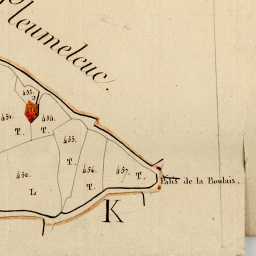 Pleumeleuc.
455.
T.
T.
455.
T.
456.
T.
457.
T.
450.
L
Patis de la Boulais.
K